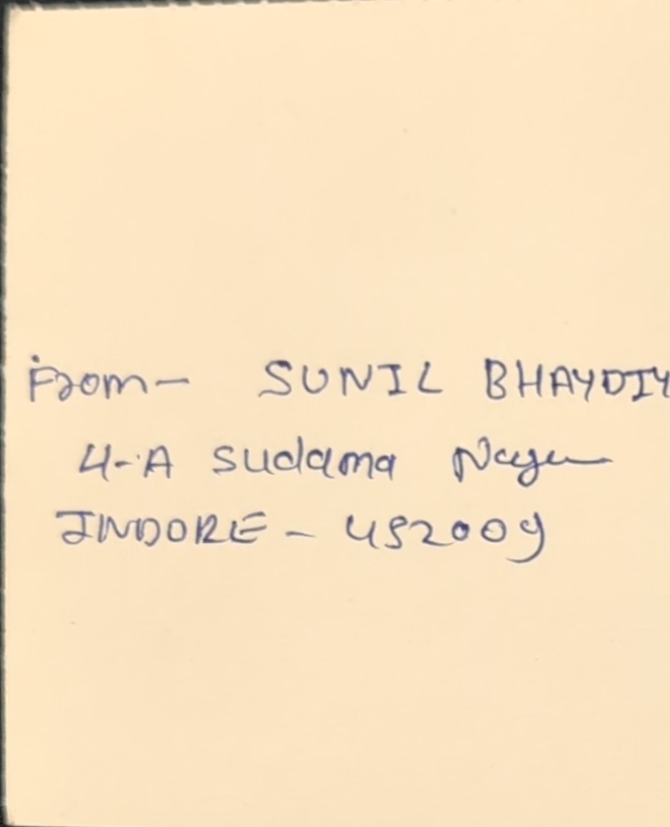 From- SUNIL BHAYDIY
4-A Sudama Nagar
INDORE - 452009